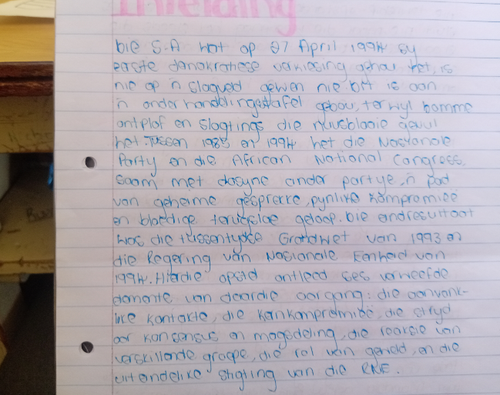 Inleiding
Die S.A wat op 27 April 1994 sy
eerste demokratiese verkiesing gehou het, is
nie op 'n slagveld gewen nie. Dit is aan
'n onderhandelingstafel gebou, terwyl bomme
ontplof en slagtings die nuusblaaie gevul
het. Tussen 1985 en 1994 het die Nasionale
Party en die African National Congress.
Saam met dosyne ander partye, 'n pad
van geheime gesprekke, pynlike kompromie
en bloedige terugslae geloop. Die eindresultaat
was die tussentydse Grondwet van 1993 en
die Regering van Nasionale Eenheid van
1994. Hierdie opstel ontleed ses verweefde
van daardie oorgang: die aanvank-
like kontakte, die kernkompromieë, die stryd
oor konsensus en magsdeling, die reaksie van
verskillende groepe, die rol van geweld, en die
uiteindelike stigting van die RNE.